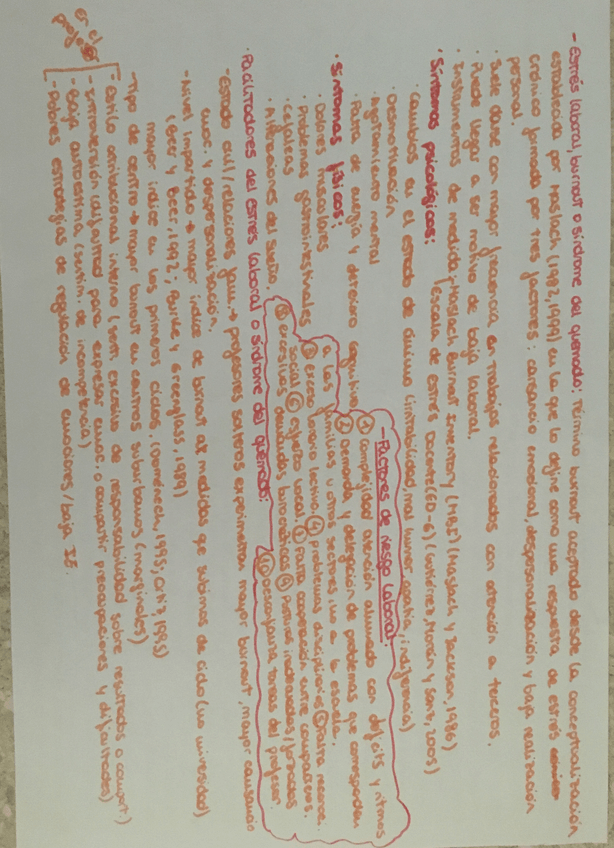 - Estrés laboral, burnout o síndrome del quemado: Término burnout aceptado desde la conceptualización
establecida por Maslach (1982, 1999) en la que lo define como una respuesta de estrés
crónico formada por tres factores: cansancio emocional, despersonalización y baja realización
personal.
· Suele darse con mayor frecuencia en trabajos relacionados con atención a terceros.
· Puede llegar a ser motivo de baja laboral.
· Instrumentos de medida: Maslach Burnout Inventory (MBI) (Maslach y Jackson, 1986)
Escala de estrés Docente (ED-6) (Gutiérrez, Morán y Sanz, 2005)
· Síntomas psicológicos:
· Cambios en el estado de ánimo (irritabilidad, mal humor, apatía, indiferencia)
· Desmotivación
· Agotamiento mental
· Falta de energía y deterioro cognitivo
· Síntomas físicos:
· Dolores musculares
· Problemas gastrointestinales
· Cefaleas
· Alteraciones del sueño.
- Factores de riesgo laboral:
① Complejidad atención alumnado con déficits y ritmos
② Demanda y delegación de problemas que corresponden
a las familias u otros sectores, no a la escuela.
③ exceso horario lectivo. ④ problemas disciplinarios ⑤ Falta recono.
social ⑥ esfuerzo vocal ⑦ Falta cooperación entre compañeros.
⑧ excesivas demandas burocráticas ⑨ horarios inadecuados/jornadas
⑩ desconfianza tareas del profesor.
· Facilitadores del estrés laboral o síndrome del quemado:
- Estado civil/relaciones fam. → profesores solteros experimentan mayor burnout, mayor cansancio
emoc. y despersonalización.
- Nivel impartido → mayor índice de burnout a medidas que subimos de ciclo (no universidad)
(Beer y Beer, 1992; Burke y Greenglass, 1989)
mayor índice en los primeros ciclos. (Doménech, 1995; Ortiz, 1995)
- Tipo de centro → mayor burnout en centros suburbanos (marginales)
en el profesor
- Estilo atribucional interno (sent. excesivo de responsabilidad sobre resultados o comport.)
- Introversión (dificultad para expresar emoc. o compartir preocupaciones y dificultades)
- Baja autoestima (sentim. de incompetencia)
- Pobres estrategias de regulación de emociones/baja IE.